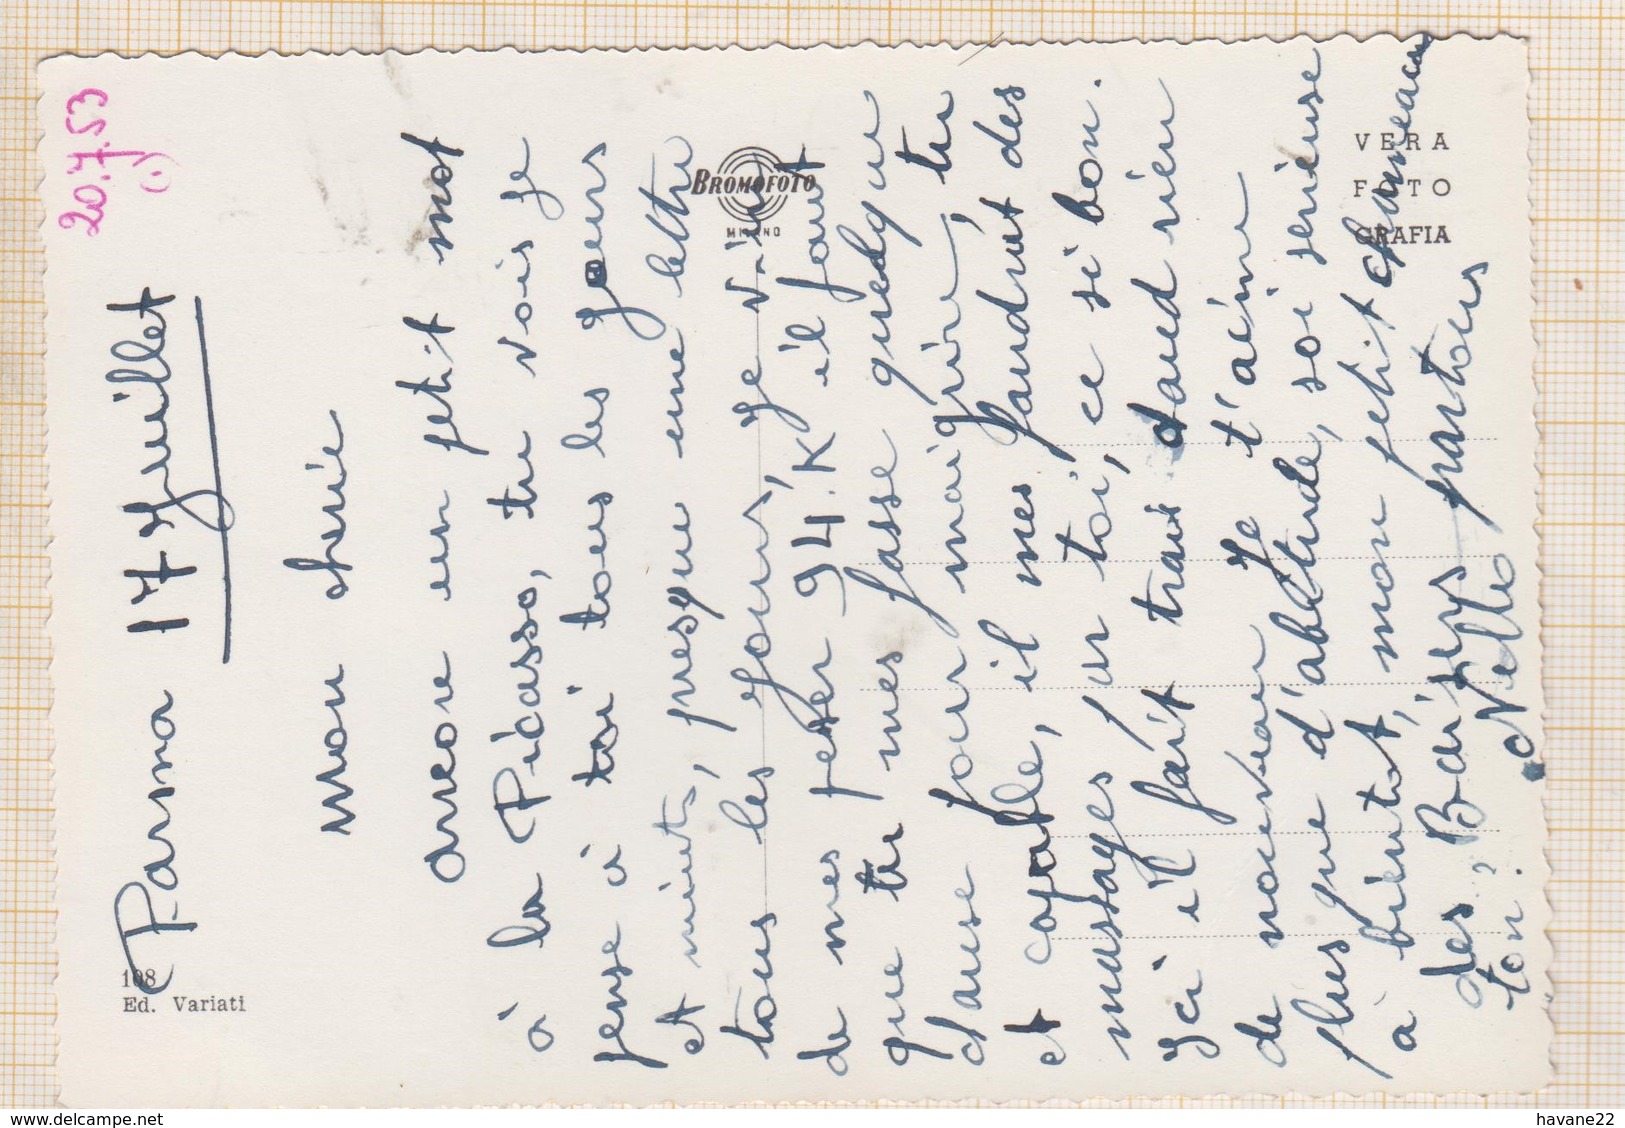 20.7.53
(.)
Parma 17 Juillet
mon cherie
ancore un petit mot
à la Picasso, tu vois je
pense à toi toes les jours
et nuits, presque une lettre
tous les jours, je vain
de mes peser 94.K il faut
que tu mes fasse quelque
chause pour maigrire, tu
et copable, il mes faudrat des
massages par toi, ce si bon.
Ici il fait trai chaud rien
de nouveau Je t'aime
plus que d'abitude, soi serieuse
à bientot, mon petit chameau
des Baisers partous
ton? Nello
108
Ed. Variati
BROMOFOTO
MILANO
VERA
FOTO
GRAFIA
havane22